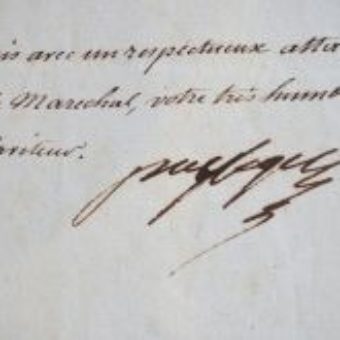 is avec un respectueux atta
Maréchal, votre très humb
erviteur.
puységur